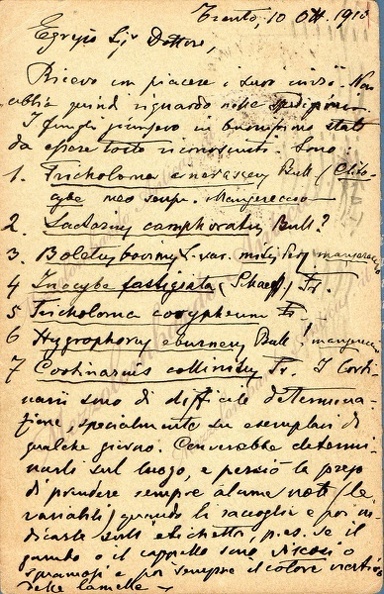 Trento, 10 Ott. 1913
Egregio Sig. Dottore,
Ricevo con piacere i suoi invii. Non
abbia quindi riguardo nelle spedizioni.
I funghi giunsero in buonissimo stato
da essere tosto riconosciuti. Sono:
1. Tricholoma cnerascens Bull (Clito-
cybe neo Mangereccio
2. Lactarius camphoratus Bull?
3. Boletus bovinus L. var. mitis Pers mangereccio
4 Inocybe fastigiata (Schaeff) Fr.
5 Tricholoma coryphaeum Fr.
6 Hygrophorus eburneus Bull! mangereccio
7 Cortinarius collinitus Fr. I Corti-
narii sono di difficile determina-
zione, specialmente su esemplari di
qualche giorno. Converrebbe determi-
narli sul luogo, e perciò la prego
di prendere sempre alcune note (le
variabili) quando li raccoglie e poi in-
dicarle sulle etichette, p.es. se il
gambo o il cappello sono viscosi o
squamosi e poi sempre il colore nativo
delle lamelle –